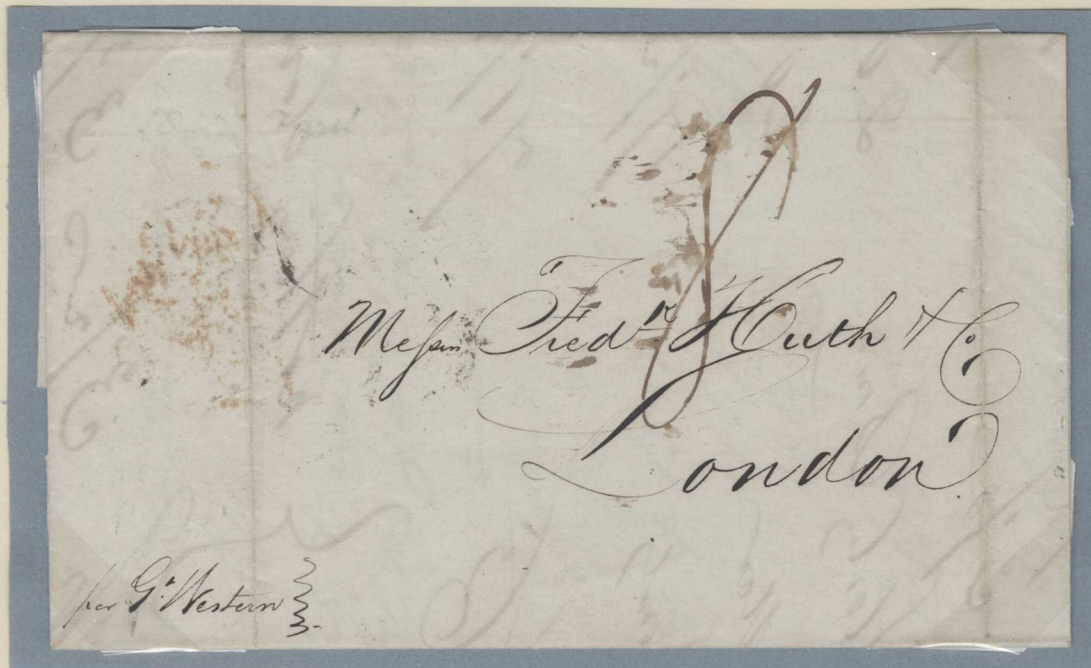 Messrs Fredk Huth & Co.
London
per Gt. Western